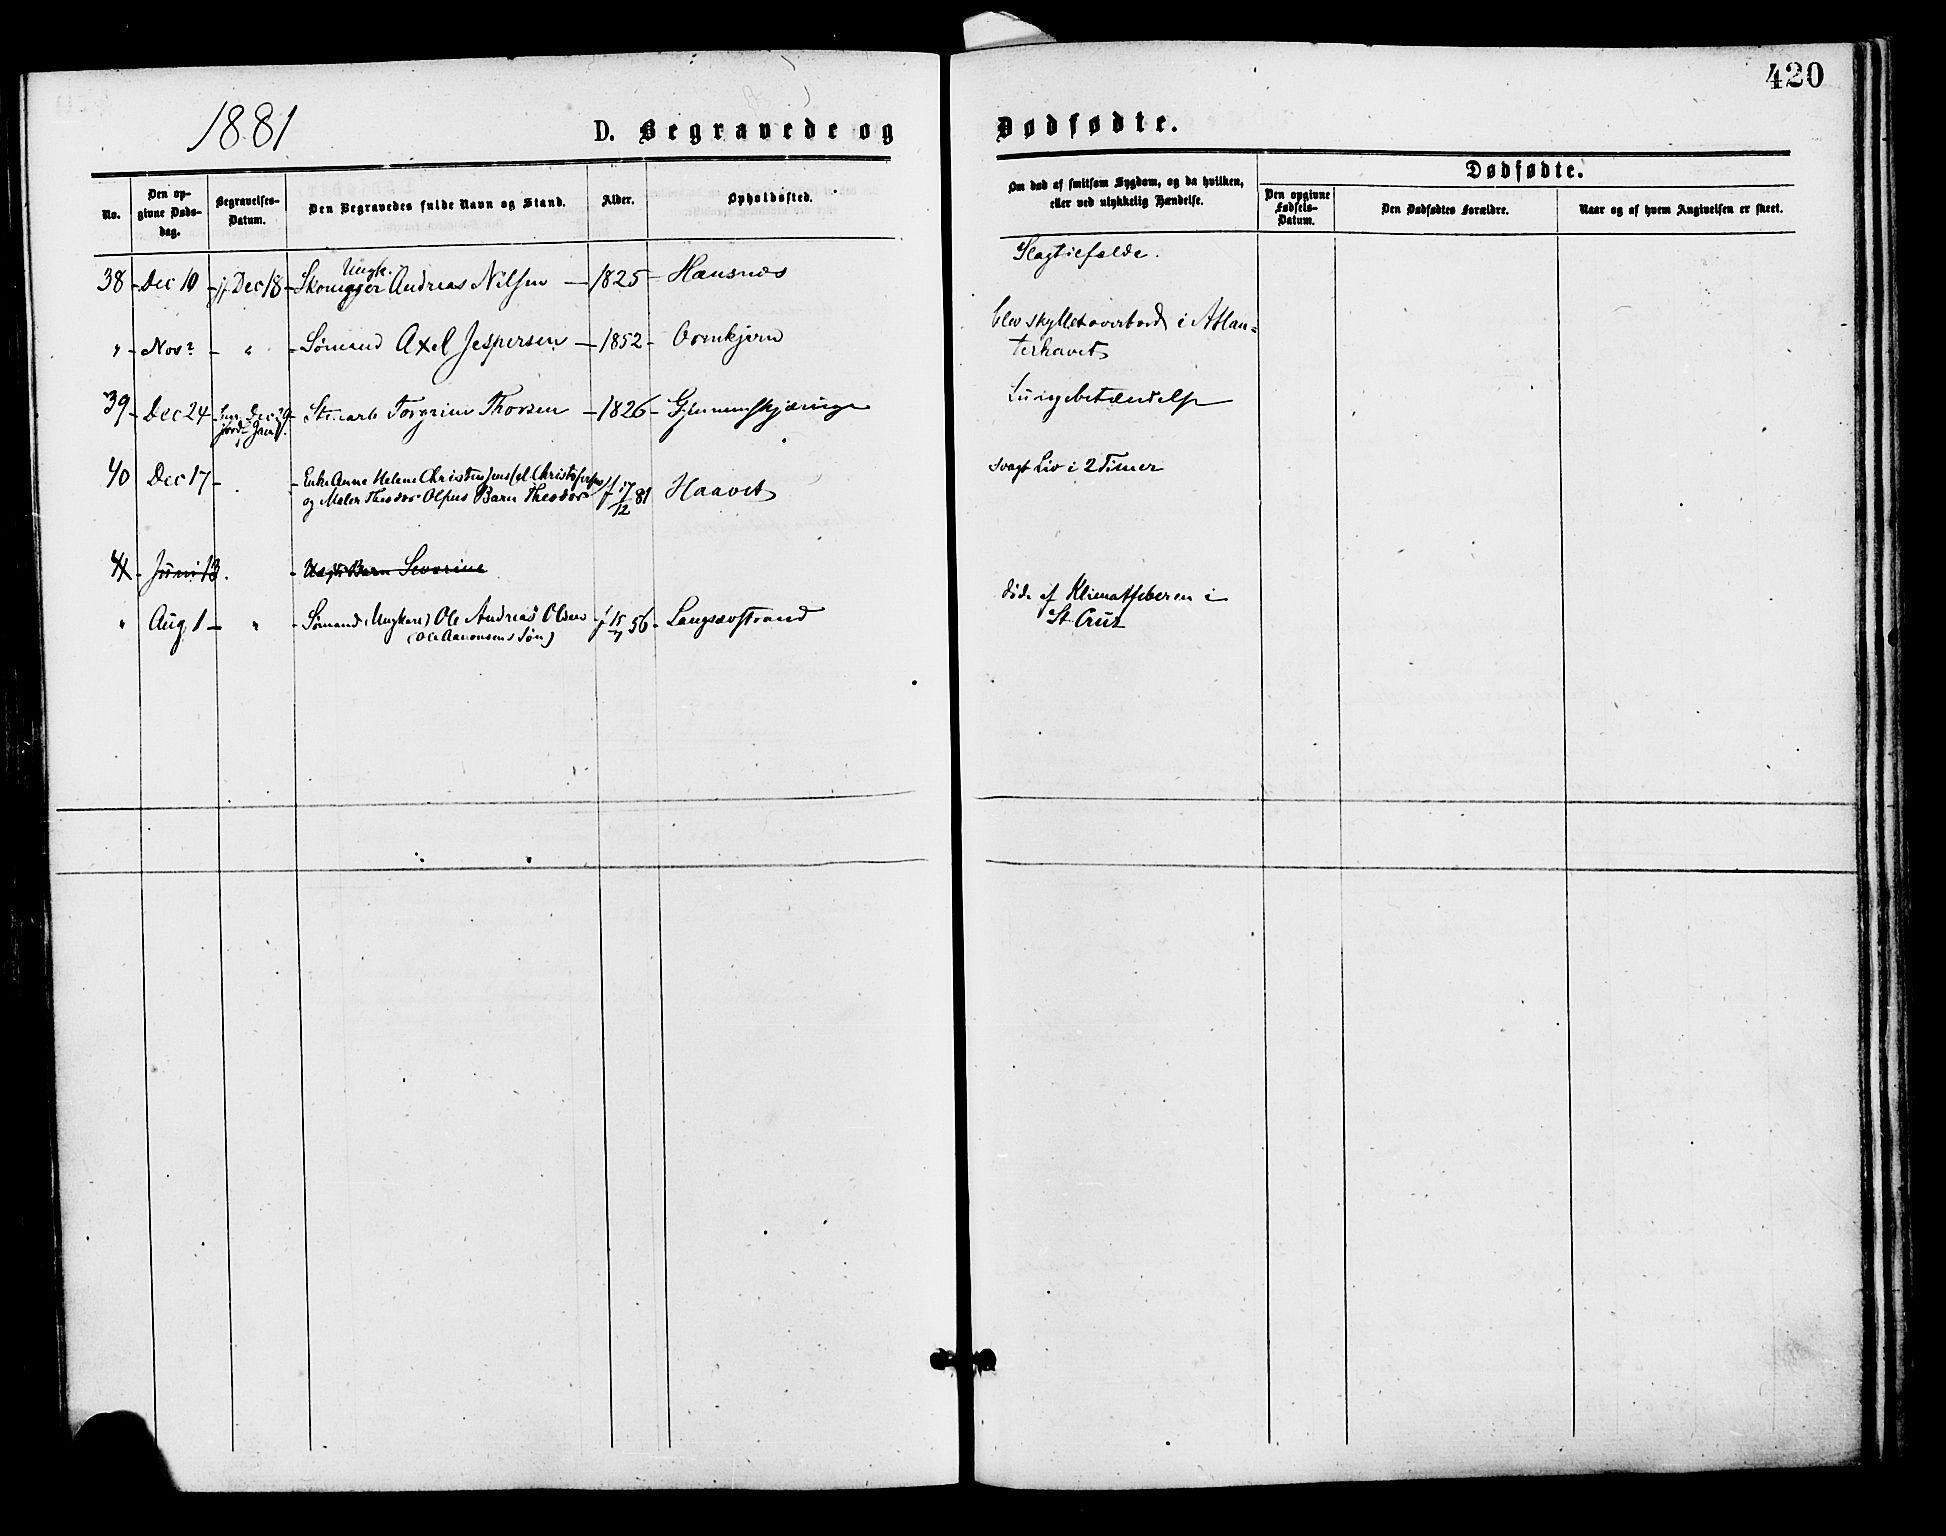 420
1881
D. Begravede og Dødfødte.
No.
Den opgivne Døds-dag.
Begravelses-Datum.
Den Begravedes fulde Navn og Stand.
Alder.
Opholdssted.
Om død af smitsom Sygdom, og da hvilken,
eller ved ulykkelig Hændelse.
Dødfødte.
Den opgivne Fødsels-Datum.
Den Dødfødtes Forældre.
Naar og af hvem Angivelsen er skeet.
Ungk.
38 - Dec 10 - jf Dec 18 - Skomager Andreas Nilsen — 1825 - Hansnæs Slagtilfælde.
" - Nov? - " - Sømand Axel Jespersen — 1852 - Ormkjern blev skyllet overbord i Atlan=
terhavet
39 - Dec 24 - Dec 29 Torgrim Thorsen - 1826 - Lungebetændelse
jord
40 Dec 17 - Enke Anne Helene
og Maler Theodor Olsens Barn Theodor f 17/12 81 Haavet svagt Liv i 2 Timer
41 - Juni 13 - Barn Severine
" Aug 1 - " - Sømand (Ungkarl) Ole Andreas Olsen f 15/7 56 - Langsævstrand døde af Klimatfeberen i
(Ole Aanonsens Søn) St Cruz